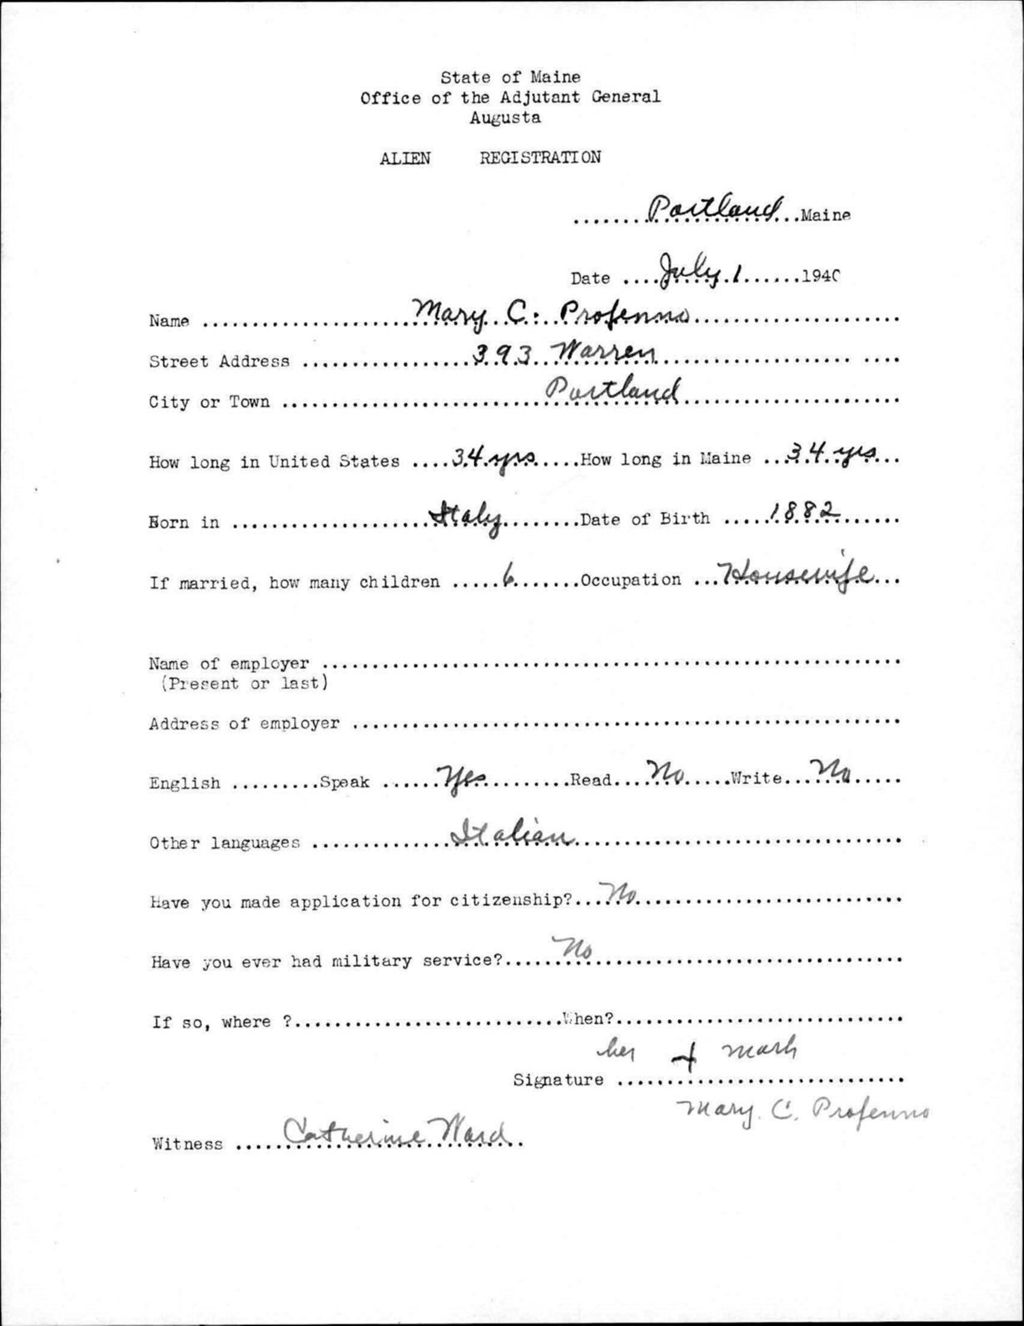 State of Maine
Office of the Adjutant General
Augusta
ALIEN REGISTRATION
.......Portland...Maine
Date ....July 1......1940
Name .....................Mary C. Profenno.....................
Street Address .................393 Warren................. ....
City or Town ..........................Portland......................
How long in United States ....34 yrs.....How long in Maine ..34 yrs...
Born in ....................Italy........Date of Birth .....1882......
If married, how many children .....6.......Occupation ...Housewife...
Name of employer ..........................................................
(Present or last)
Address of employer .......................................................
English .........Speak ......Yes.........Read....No.....Write...No.....
Other languages ..............Italian.................................
Have you made application for citizenship?...No...........................
Have you ever had military service?......No...............................
If so, where ?...........................When?.............................
her + mark
Signature .............................
Mary. C. Profenno
Witness .....Catherine Ward..